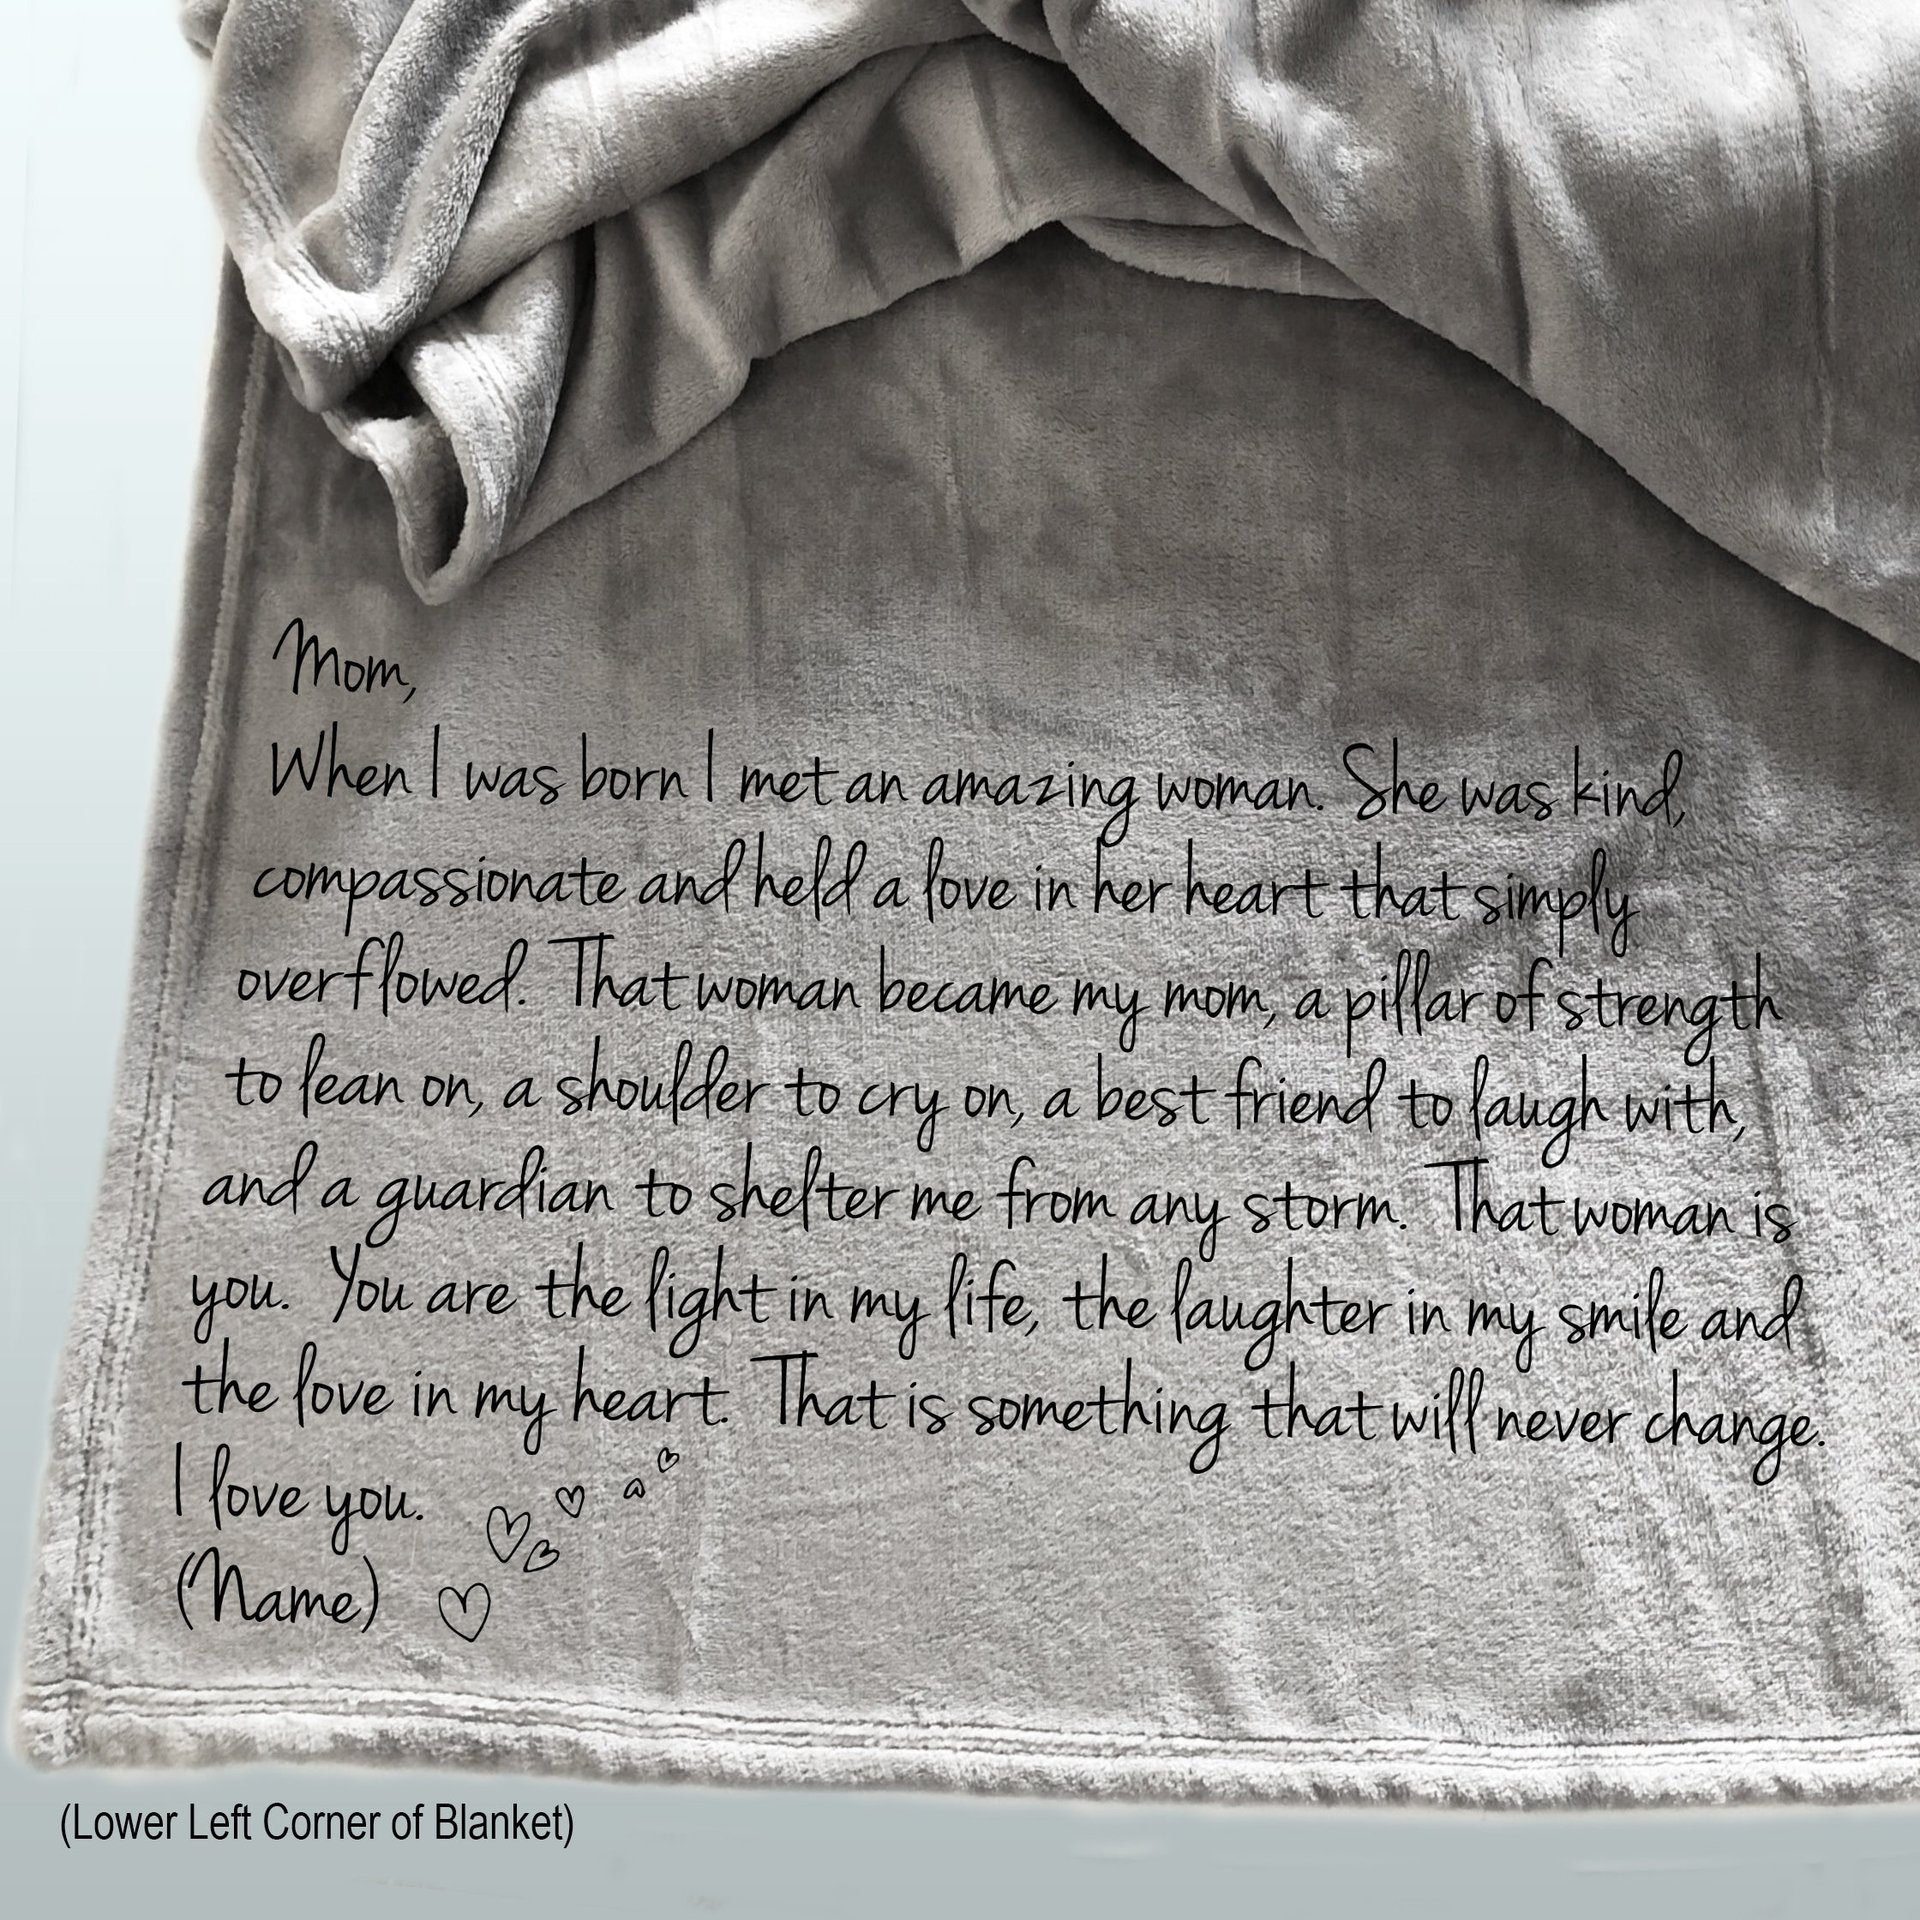 Mom,
When I was born I met an amazing woman. She was kind,
compassionate and held a love in her heart that simply
overflowed. That woman became my mom, a pillar of strength
to lean on, a shoulder to cry on, a best friend to laugh with,
and a guardian to shelter me from any storm. That woman is
you. You are the light in my life, the laughter in my smile and
the love in my heart. That is something that will never change.
I love you.
(Name)
(Lower Left Corner of Blanket)